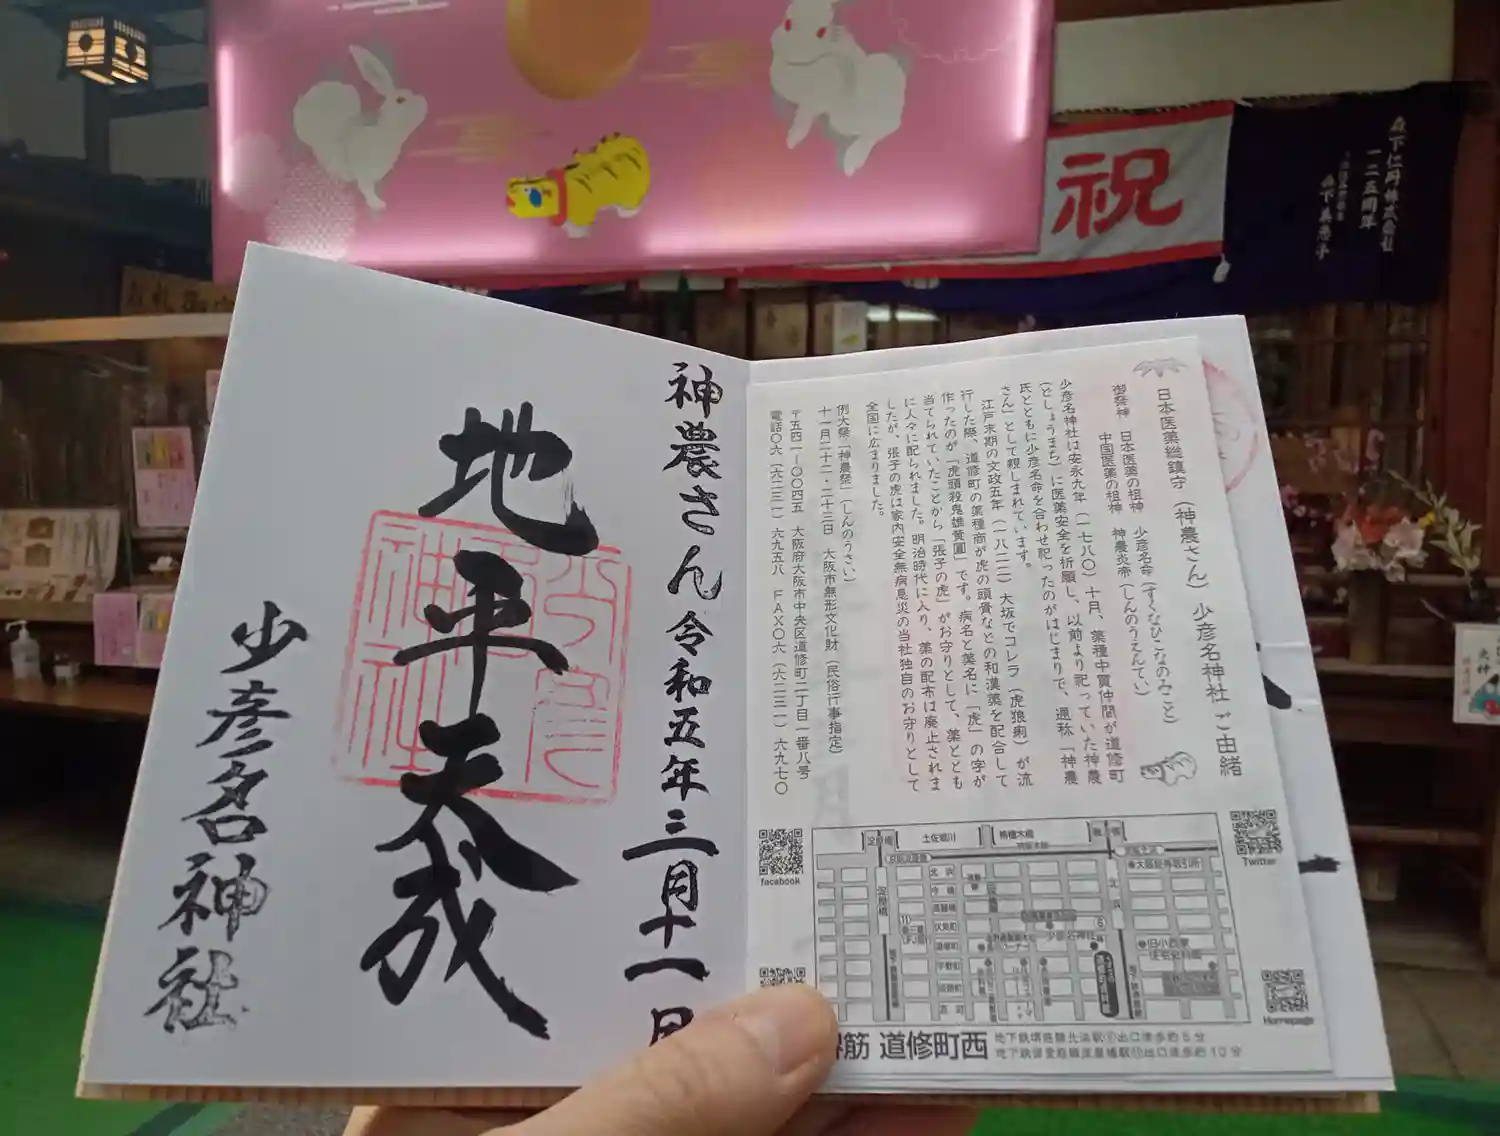 祝
森下仁丹株式会社
一二五周年
神農さん 令和五年三月十一日
地平天成
少彦名神社
日本医薬総鎮守(神農さん) 少彦名神社 ご由緒
御祭神 日本医薬の祖神 少彦名命(すくなひこなのみこと)
中国医薬の祖神 神農炎帝(しんのうえんてい)
少彦名神社は安永九年(一七八〇)十月、薬種中買仲間が道修町
(どしょうまち)に医薬安全を祈願し、以前より祀っていた神農
氏とともに少彦名命を合わせ祀ったのがはじまりで、通称「神農
さん」として親しまれています。
江戸末期の文政五年(一八二二)大坂でコレラ(虎狼痢)が流
行した際、道修町の薬種商が虎の頭骨などの和漢薬を配合して
作ったのが「虎頭殺鬼雄黄圓」です。病名と薬名に「虎」の字が
当てられていたことから「張子の虎」がお守りとして、薬ととも
に人々に配られました。明治時代に入り、薬の配布は廃止されま
したが、張子の虎は家内安全無病息災の当社独自のお守りとして
全国に広まりました。
例大祭「神農祭」(しんのうさい)
十一月二十二・二十三日 大阪市無形文化財(民俗行事指定)
〒五四一-〇〇四五 大阪府大阪市中央区道修町二丁目一番八号
電話〇六(六二三一)六九五八 FAX〇六(六二三一)六九七〇
facebook
Twitter
Homepage
淀屋橋
土佐堀川
栴檀木橋
北浜
今橋
高麗橋
伏見町
道修町
平野町
淡路町
少彦名神社
旧小西家
住宅史料館
大阪証券取引所
筋 道修町西
地下鉄堺筋線北浜駅⑥出口徒歩約5分
地下鉄御堂筋線淀屋橋駅⑪出口徒歩約10分